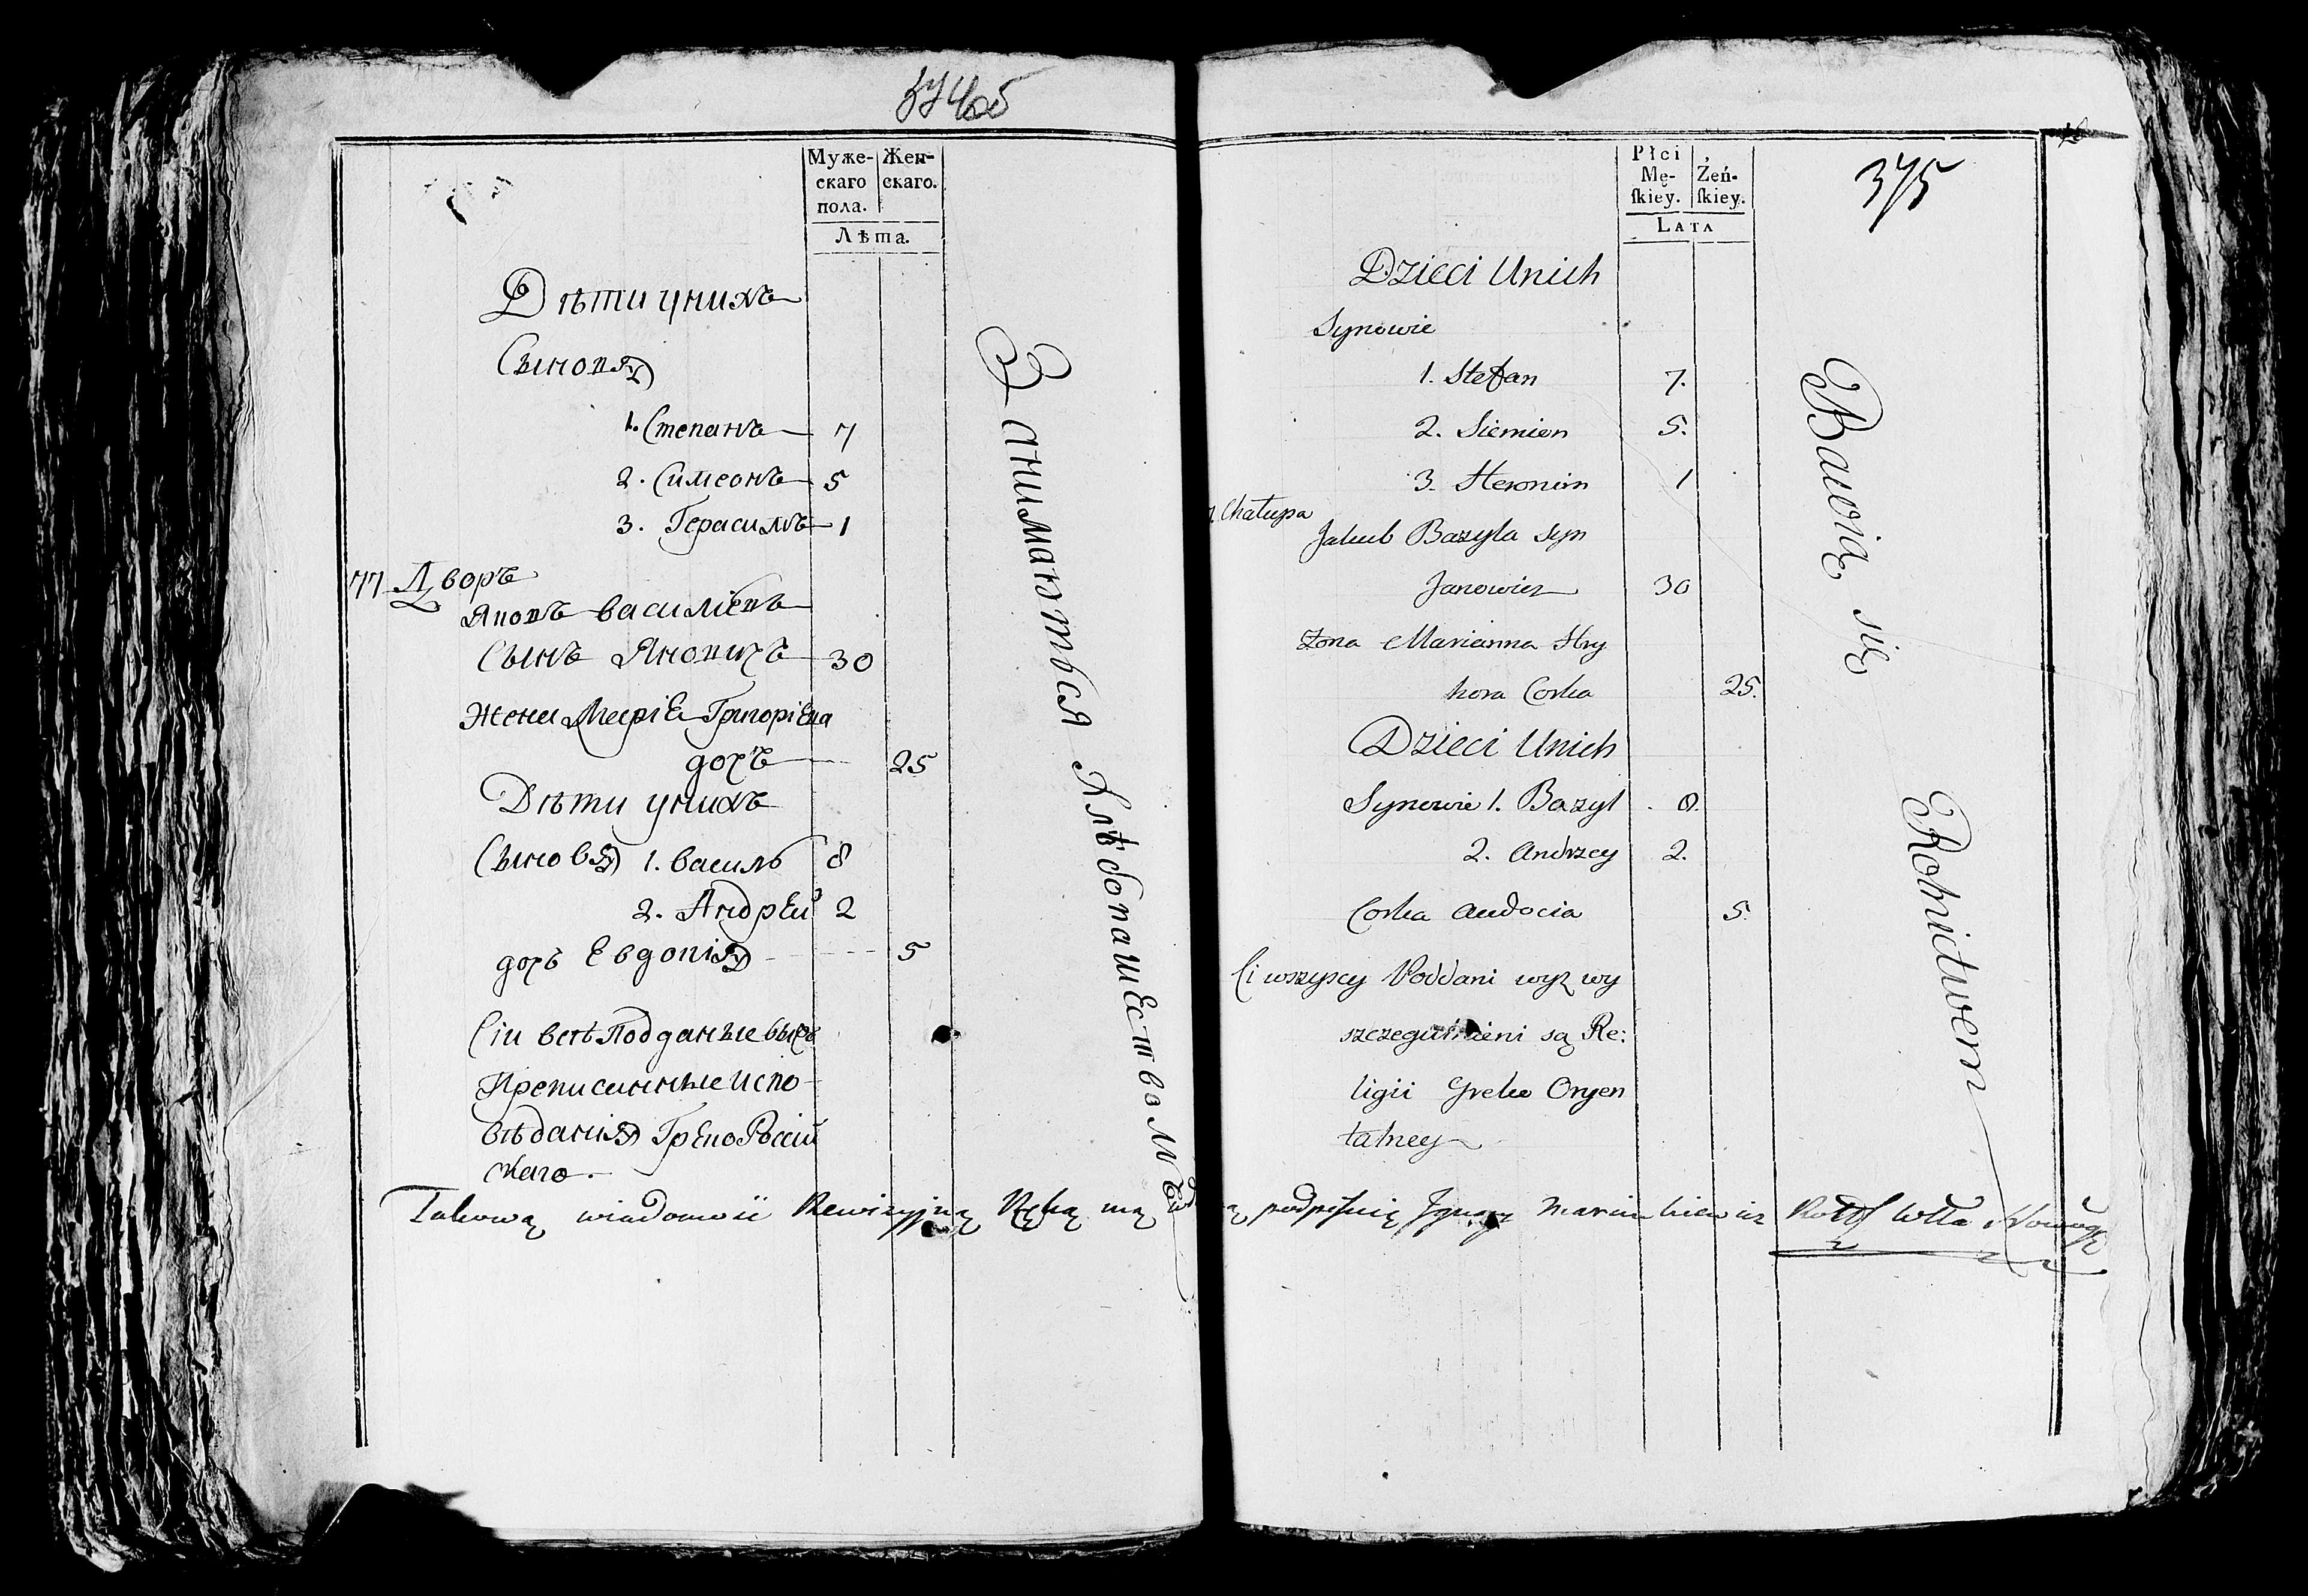 374об
Муже-
скаго
пола.
Жен-
скаго.
Лѣта.
Дѣти унихъ
Сыновя
1. Степанъ 7
2. Симеонъ 5
3. Герасимъ 1
77 Дворъ
Яковъ василіевъ
Сынъ Яновичъ 30
Жена Марія Григоріева
дочъ 25
Дѣти унихъ
Сыновя 1. василь 8
2. Андрей 2
дочь Евдокія 5
Сіи всѣ Подданые выше
Прописанные испо
вѣданія Греко Россій
скаго.
Занимаются Хлѣбопашествомъ
375
Płci
Mę-
ſkiey.
Żeń-
ſkiey.
Lata
Dzieci Unich
Synowie
1. Stefan 7.
2. Siemion 5.
3. Heronim 1
Chałupa
Jakub Bazyla syn
Janowicz 30
Zona Marianna Hry
hora Corka 25.
Dzieci Unich
Synowie 1. Bazyl 8.
2. Andrzey 2.
Corka Audocia 5.
Ci wszyscy Poddani wyz wy
szczegulnieni są Re:
ligii Greko Oryen
talney
Bawią się Rolnictwem
Takową wiadomość Rewizyjną Ręką mą podpisuię Ignacy Marcinkiewicz